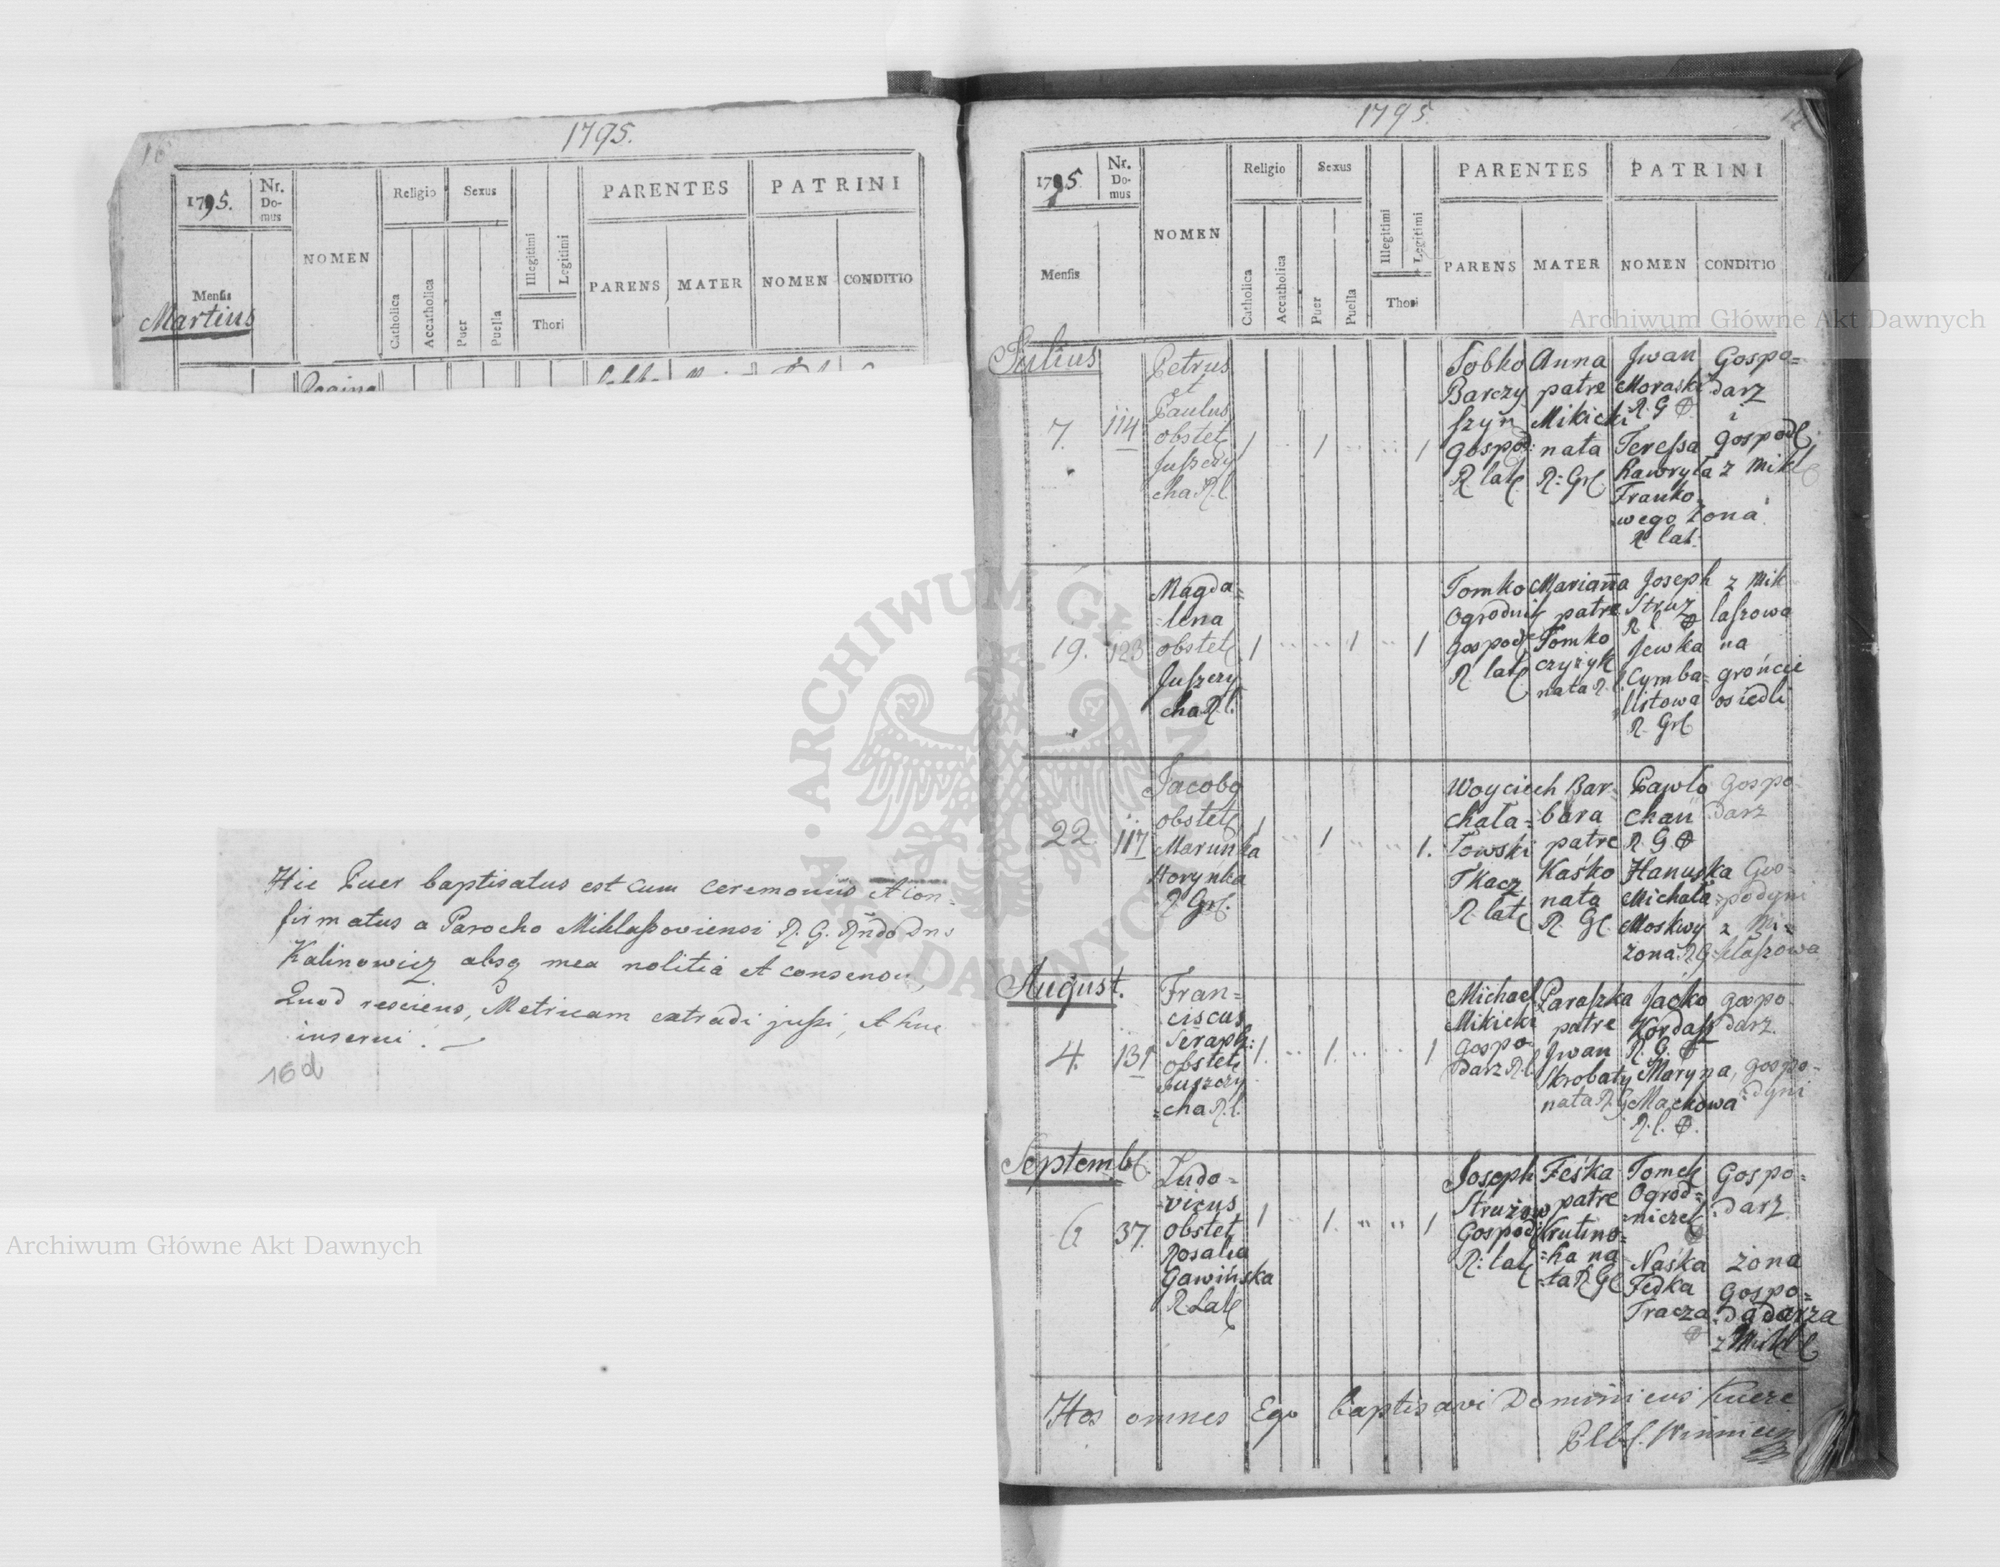 16
1795.
1795.
Nr.
Do-
mus
NOMEN
Religio
Sexus
PARENTES
PATRINI
Mensis
Catholica
Accatholica
Puer
Puella
Illegitimi
Legitimi
Thori
PARENS
MATER
NOMEN
CONDITIO
Martius
Hic Puer baptisatus est cum ceremoniis et con-
firmatus a Parocho Miklaszoviensi R. G. Rndo Dno
Kalinowicz absq mea notitia et consensu,
Quod resciens, Metricam extradi jussi, et huc
inserui.
16d
1795.
1795.
Nr.
Do-
mus
NOMEN
Religio
Sexus
PARENTES
PATRINI
Mensis
Catholica
Accatholica
Puer
Puella
Illegitimi
Legitimi
Thori
PARENS
MATER
NOMEN
CONDITIO
Julius
7. 114
Petrus
et
Paulus
obstet
Juszczy
cha R. l.
1 1 1
Sobko
Barczy
szyn
gospod:
R. lat
Anna
patre
Mikicki
nata
R: Gr.
Jwan
Moraski
R. G
Teressa
hawryła
Franko
wego żona
R. lat.
Gospo=
darz
i
Gospod
z Mikl
19. 123
Magda=
lena
obstet
Juszczy
cha R. l.
1 1 1
Tomko
Ogrodnik
gospod
R. lat
Marianna
patre
Tomko
czyżyk
nata R. l.
Joseph
Struz
R. l.
Jewka
Cymba=
listowa
R. Gr
z Mik
laszowa
na
grońcie
osiedli
22 117
Jacobg
obstet
Marunka
Horynka
R. Gr.
1 1 1.
Woyciech
Chała=
towski
Tkacz
R. lat
Bar-
bara
patre
Kaśko
nata
R. G.
Pawło
Chan
R. G
Hanuska
Michała
Moskwy
żona R G
Gospo
darz
Gos-
podyni
z Mi=
klaszowa
August.
4. 131
Fran=
ciscus
Seraph:
obstet
Juszczy
=cha R. l.
1. 1. 1
Michael
Mikicki
gospo
darz R. l
Paraszka
patre
Jwan
Skrobaty
nata R. G
Jacko
Kordasz
R. G.
Maryna,
Mackowa
R. l.
gospo
darz.
gospo-
dyni
Septemb.
6. 37.
Ludo=
vicus
obstet
Rosalia
Gawińska
R Lat
1 1. 1
Joseph
Strużow
Gospod
R: lat
Feśka
patre
Krutino=
=ha na
=ta R G
Tomek
Ogrod=
=niczek
Naśka
Fedka
Tracza
Gospo=
darz
żona
Gospo=
dadarza
z Mikl
Hos omnes Ego baptisavi Dominicus
Winnicen
Archiwum Główne Akt Dawnych
Archiwum Główne Akt Dawnych
ARCHIWUM GŁÓWNE AKT DAWNYCH